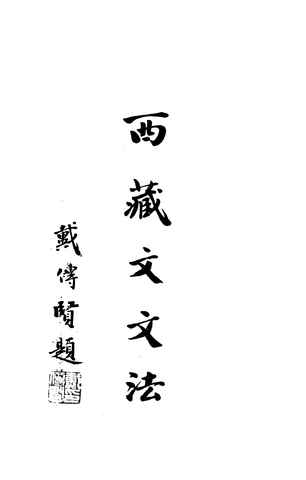 西藏文文法
戴傳賢題